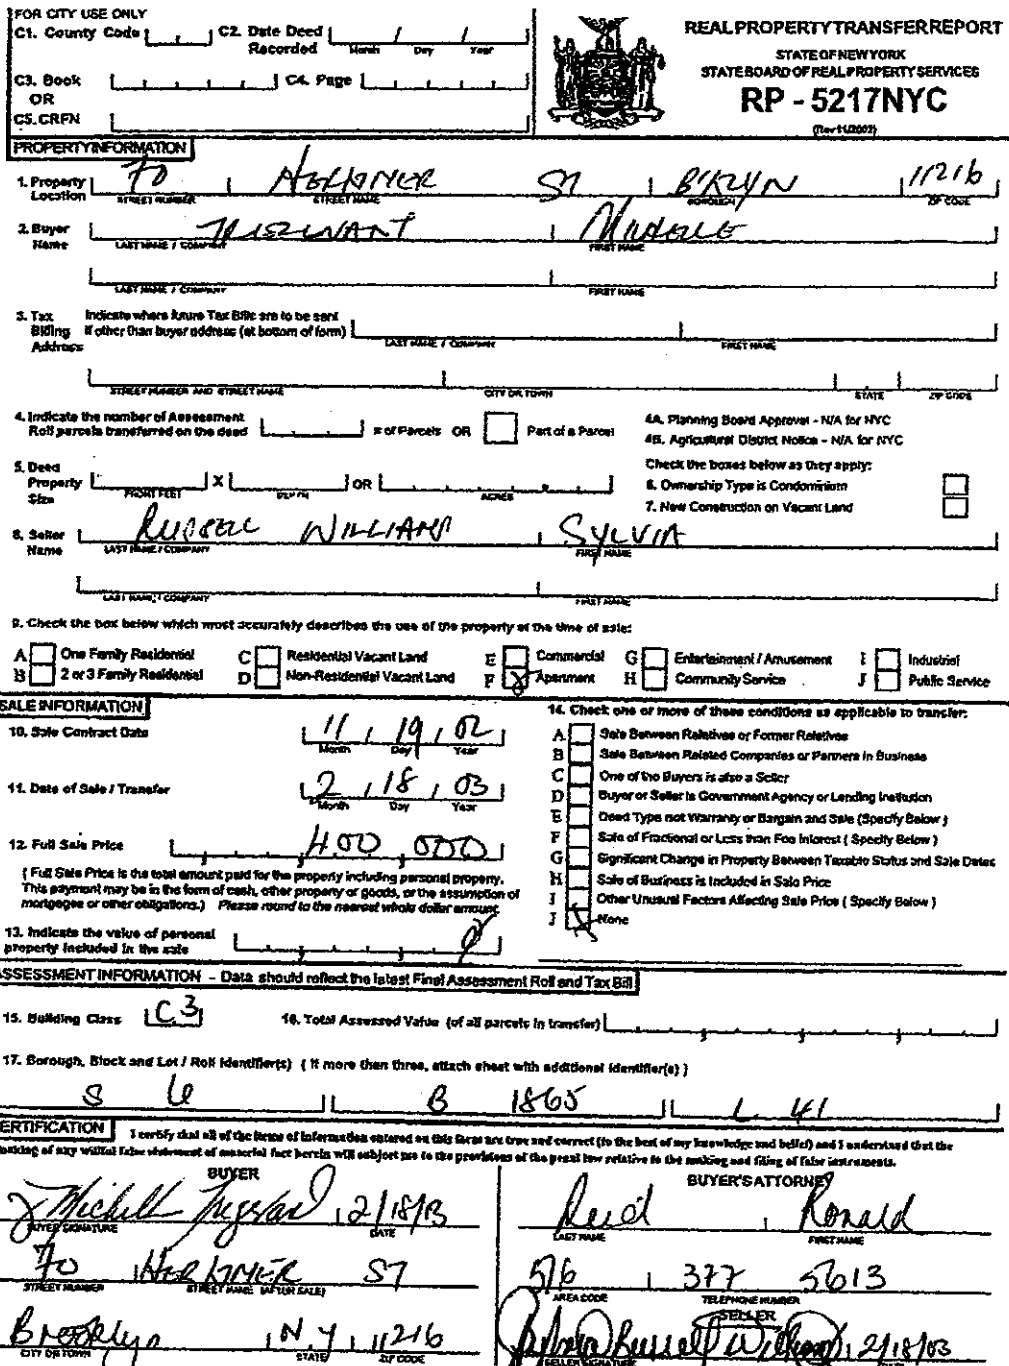 FOR CITY USE ONLY
C1. County Code
C2. Date Deed Recorded
Month Day Year
C3. Book
OR
C4. Page
C5. CRFN
REAL PROPERTY TRANSFER REPORT
STATE OF NEW YORK
STATE BOARD OF REAL PROPERTY SERVICES
RP - 5217NYC
(Rev 11/2002)
PROPERTY INFORMATION
1. Property Location
70 HERKIMER ST B'KLYN 11216
STREET NUMBER STREET NAME BOROUGH ZIP CODE
2. Buyer Name
MICHELLE
LAST NAME / COMPANY FIRST NAME
LAST NAME / COMPANY FIRST NAME
3. Tax Billing Address
Indicate where future Tax Bills are to be sent
if other than buyer address (at bottom of form)
LAST NAME / COMPANY FIRST NAME
STREET NUMBER AND STREET NAME CITY OR TOWN STATE ZIP CODE
4. Indicate the number of Assessment
Roll parcels transferred on the deed
# of Parcels OR Part of a Parcel
4A. Planning Board Approval - N/A for NYC
4B. Agricultural District Notice - N/A for NYC
5. Deed Property Size
FRONT FEET X DEPTH OR ACRES
Check the boxes below as they apply:
6. Ownership Type is Condominium
7. New Construction on Vacant Land
8. Seller Name
RUSSELL WILLIAMS SYLVIA
LAST NAME / COMPANY FIRST NAME
LAST NAME / COMPANY FIRST NAME
9. Check the box below which most accurately describes the use of the property at the time of sale:
A One Family Residential
B 2 or 3 Family Residential
C Residential Vacant Land
D Non-Residential Vacant Land
E Commercial
F X Apartment
G Entertainment / Amusement
H Community Service
I Industrial
J Public Service
SALE INFORMATION
10. Sale Contract Date
11 / 19 / 02
Month Day Year
11. Date of Sale / Transfer
2 / 18 / 03
Month Day Year
12. Full Sale Price
400,000
( Full Sale Price is the total amount paid for the property including personal property.
This payment may be in the form of cash, other property or goods, or the assumption of
mortgages or other obligations.) Please round to the nearest whole dollar amount.
13. Indicate the value of personal
property included in the sale
14. Check one or more of these conditions as applicable to transfer:
A Sale Between Relatives or Former Relatives
B Sale Between Related Companies or Partners in Business
C One of the Buyers is also a Seller
D Buyer or Seller is Government Agency or Lending Institution
E Deed Type not Warranty or Bargain and Sale (Specify Below )
F Sale of Fractional or Less than Fee Interest ( Specify Below )
G Significant Change in Property Between Taxable Status and Sale Dates
H Sale of Business is Included in Sale Price
I Other Unusual Factors Affecting Sale Price ( Specify Below )
J X None
ASSESSMENT INFORMATION - Data should reflect the latest Final Assessment Roll and Tax Bill
15. Building Class C3
16. Total Assessed Value (of all parcels in transfer)
17. Borough, Block and Lot / Roll Identifier(s) ( If more than three, attach sheet with additional identifier(s) )
B 1865 L 41
CERTIFICATION
I certify that all of the items of information entered on this form are true and correct (to the best of my knowledge and belief) and I understand that the
making of any willful false statement of material fact herein will subject me to the provisions of the penal law relative to the making and filing of false instruments.
BUYER
Michelle 2/18/03
BUYER SIGNATURE DATE
70 HERKIMER ST
STREET NUMBER STREET NAME (AFTER SALE)
Brooklyn NY 11216
CITY OR TOWN STATE ZIP CODE
BUYER'S ATTORNEY
Reid Ronald
LAST NAME FIRST NAME
516 377 5613
AREA CODE TELEPHONE NUMBER
SELLER
Russell Williams 2/18/03
SELLER SIGNATURE